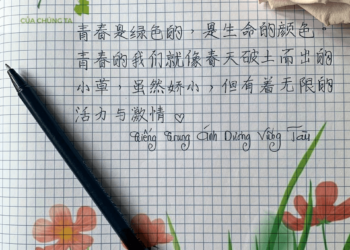 CỦA CHÚNG TA
青春是绿色的，是生命的颜色。
青春的我们就像春天破土而出的
小草，虽然娇小，但有着无限的
活力与激情♡
Tiếng Trung Ánh Dương Vũng Tàu